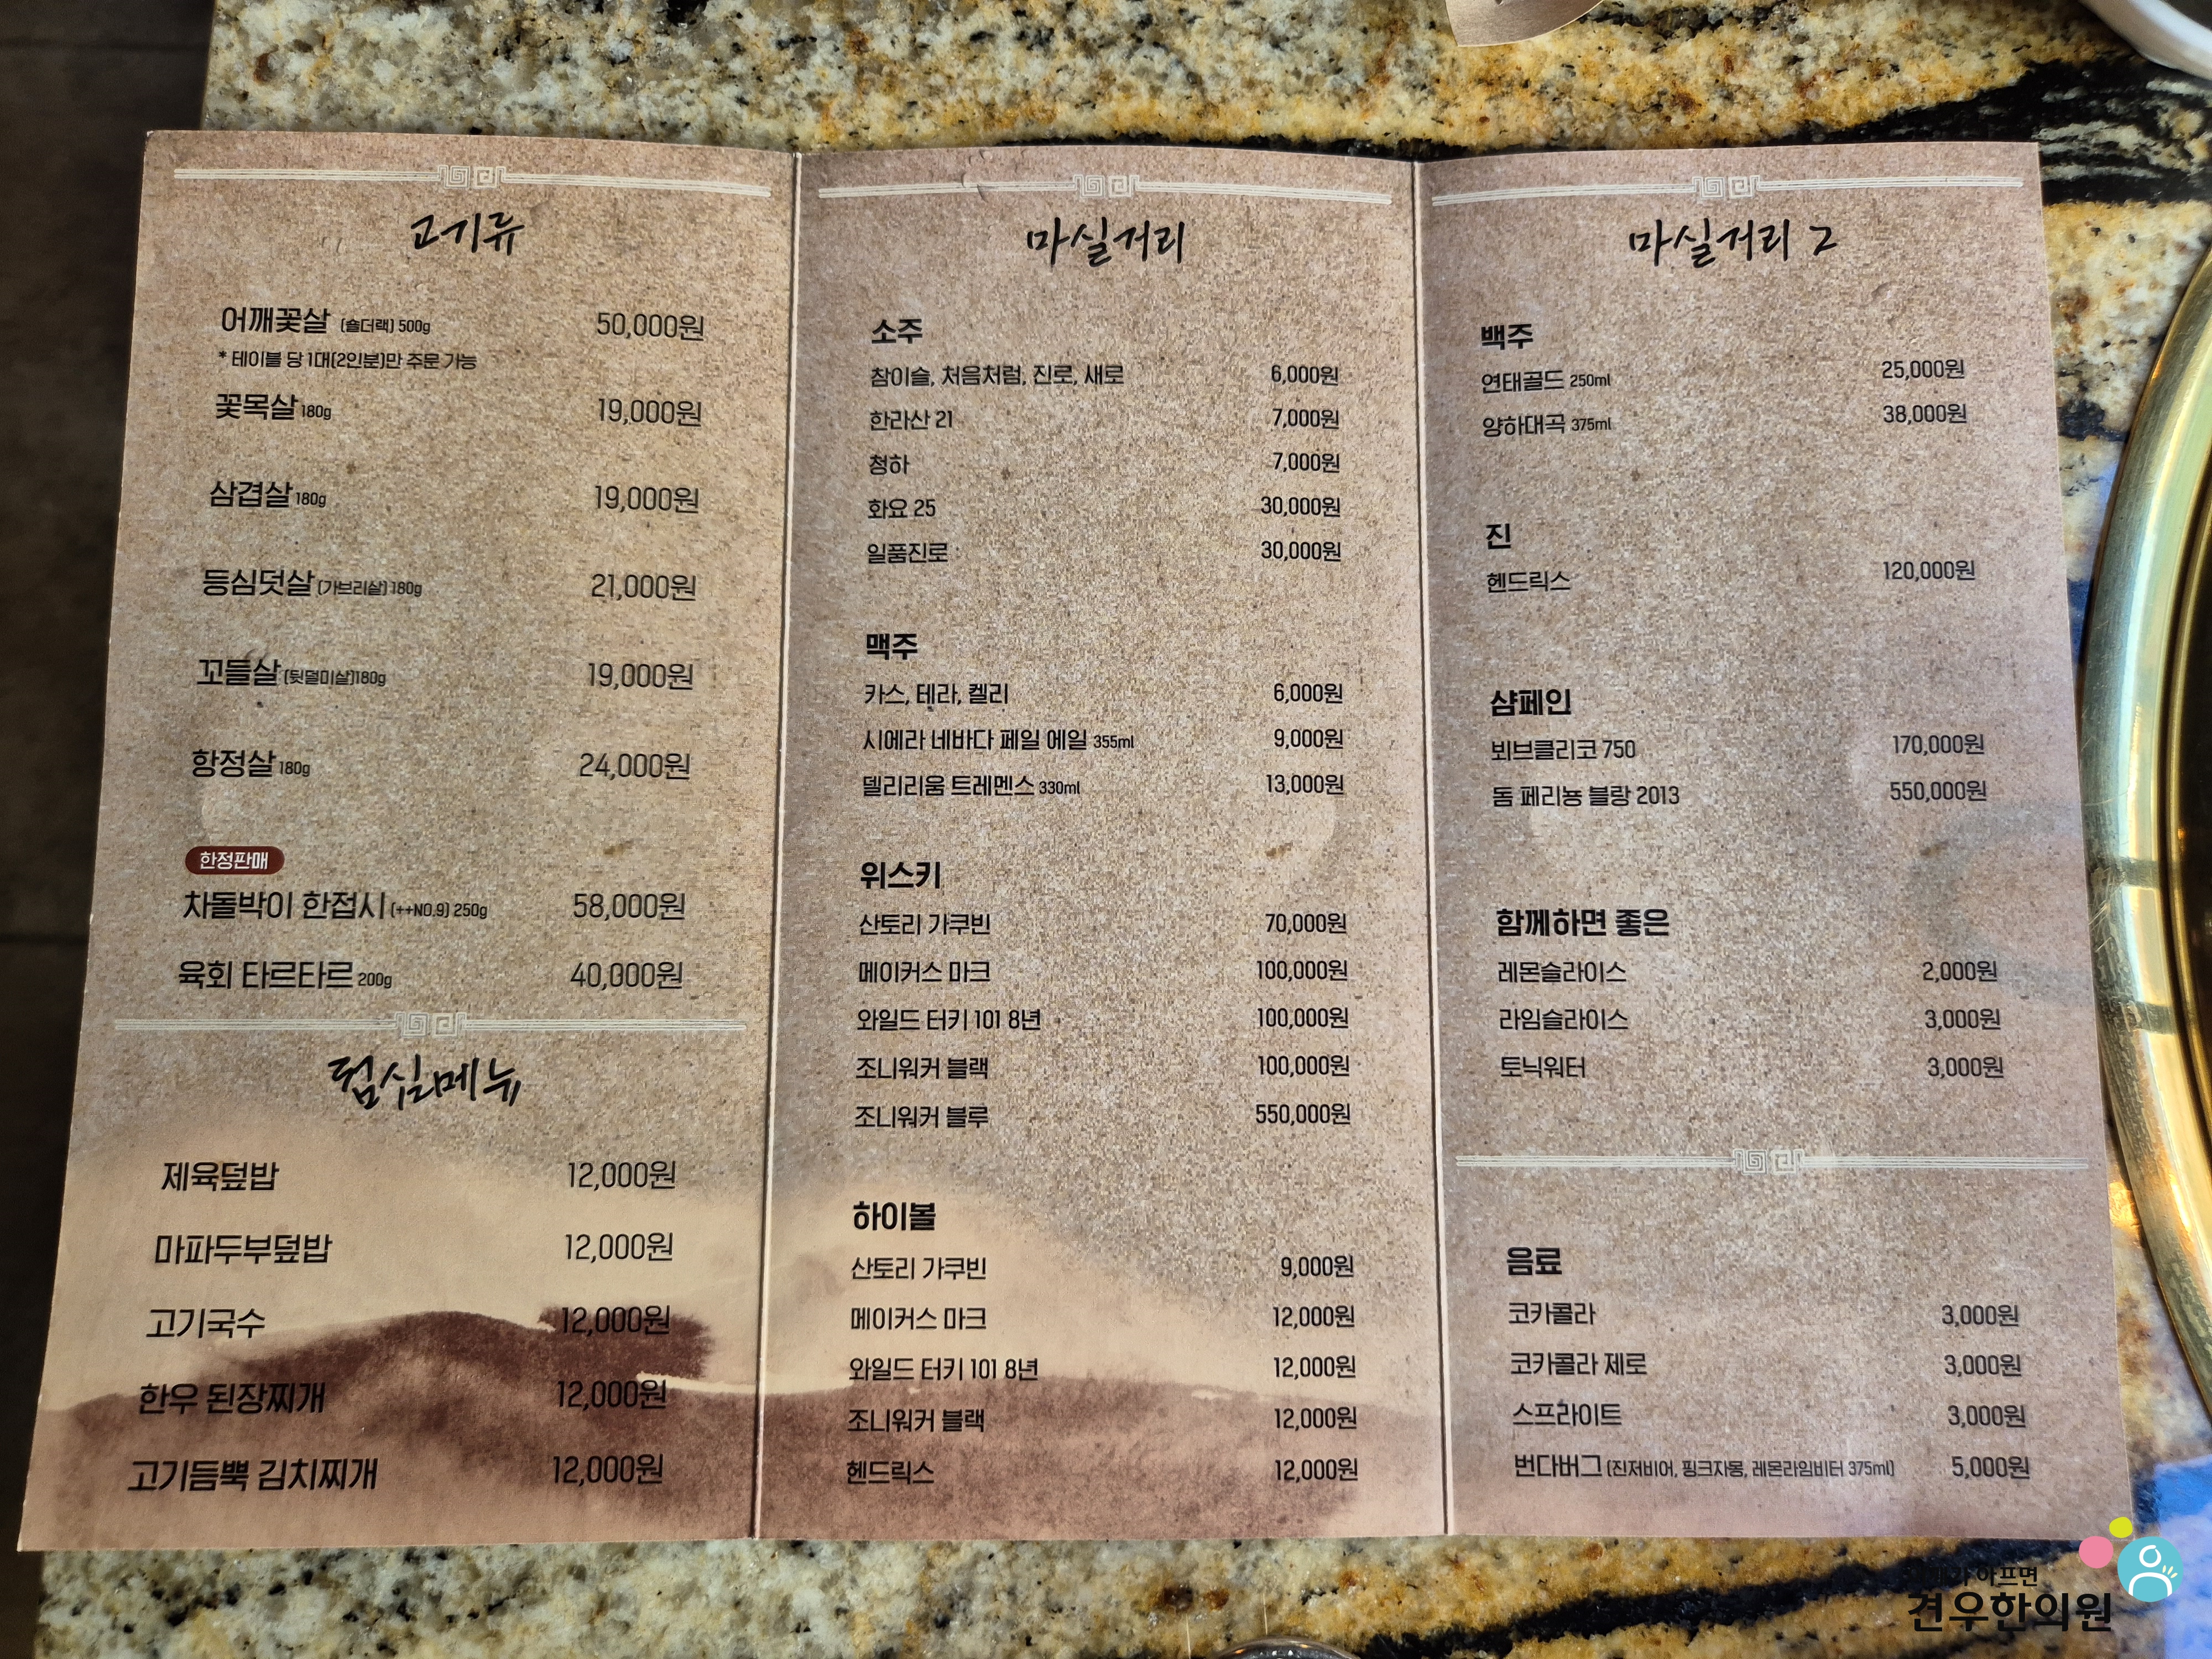 고기류
어깨꽃살 (숄더랙) 500g 50,000원
* 테이블 당 1대(2인분)만 주문 가능
꽃목살 180g 19,000원
삼겹살 180g 19,000원
등심덧살 (가브리살) 180g 21,000원
꼬들살 (뒷덜미살)180g 19,000원
항정살 180g 24,000원
한정판매
차돌박이 한접시 (++NO.9) 250g 58,000원
육회 타르타르 200g 40,000원
점심메뉴
제육덮밥 12,000원
마파두부덮밥 12,000원
고기국수 12,000원
한우 된장찌개 12,000원
고기듬뿍 김치찌개 12,000원
마실거리
소주
참이슬, 처음처럼, 진로, 새로 6,000원
한라산 21 7,000원
청하 7,000원
화요 25 30,000원
일품진로 30,000원
맥주
카스, 테라, 켈리 6,000원
시에라 네바다 페일 에일 355ml 9,000원
델리리움 트레멘스 330ml 13,000원
위스키
산토리 가쿠빈 70,000원
메이커스 마크 100,000원
와일드 터키 101 8년 100,000원
조니워커 블랙 100,000원
조니워커 블루 550,000원
하이볼
산토리 가쿠빈 9,000원
메이커스 마크 12,000원
와일드 터키 101 8년 12,000원
조니워커 블랙 12,000원
헨드릭스 12,000원
마실거리 2
백주
연태골드 250ml 25,000원
양하대곡 375ml 38,000원
진
헨드릭스 120,000원
샴페인
뵈브클리코 750 170,000원
돔 페리뇽 블랑 2013 550,000원
함께하면 좋은
레몬슬라이스 2,000원
라임슬라이스 3,000원
토닉워터 3,000원
음료
코카콜라 3,000원
코카콜라 제로 3,000원
스프라이트 3,000원
번다버그 (진저비어, 핑크자몽, 레몬라임비터 375ml) 5,000원
아프면
견우한의원